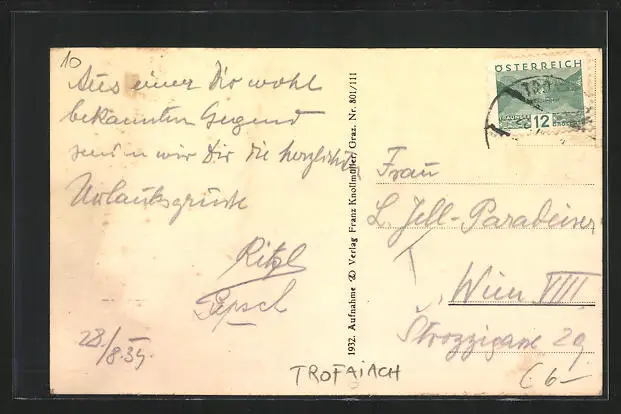 10
Aus einer Dir wohl
bekannten Gegend
senden wir Dir die herzlichsten
Urlaubsgrüsse
Ritzl
Pepserl
28./8.34.
1932. Aufnahme & Verlag Franz Knollmüller, Graz. Nr. 801/111
ÖSTERREICH
12
Frau
L. Jell-Paradeiser
Wien VIII
Strozzigasse 29
TROFAIACH
C 6—